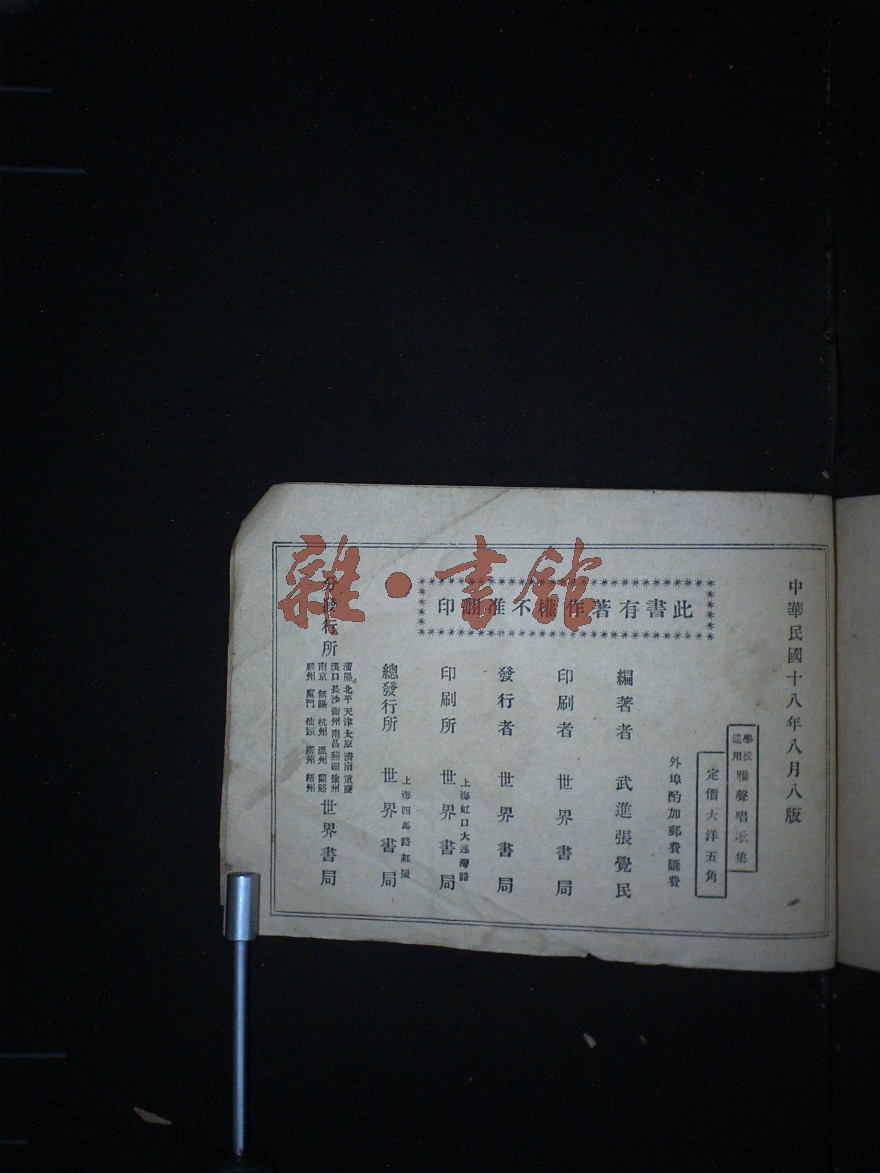 中華民國十八年八月八版
學校適用
雅聲唱歌集
定價大洋五角
外埠酌加郵費匯費
此書有著作權不准翻印
編著者 武進張覺民
印刷者 世界書局
發行者 世界書局
印刷所 上海虹口大連灣路 世界書局
總發行所 上海四馬路紅屋 世界書局
分發行所
瀋陽 北平 天津 太原 濟南 重慶
漢口 長沙 衢州 南昌 蕪湖 徐州
南京 無錫 杭州 溫州 蘭谿
福州 廈門 汕頭 廣州 梧州
世界書局
雜·書館